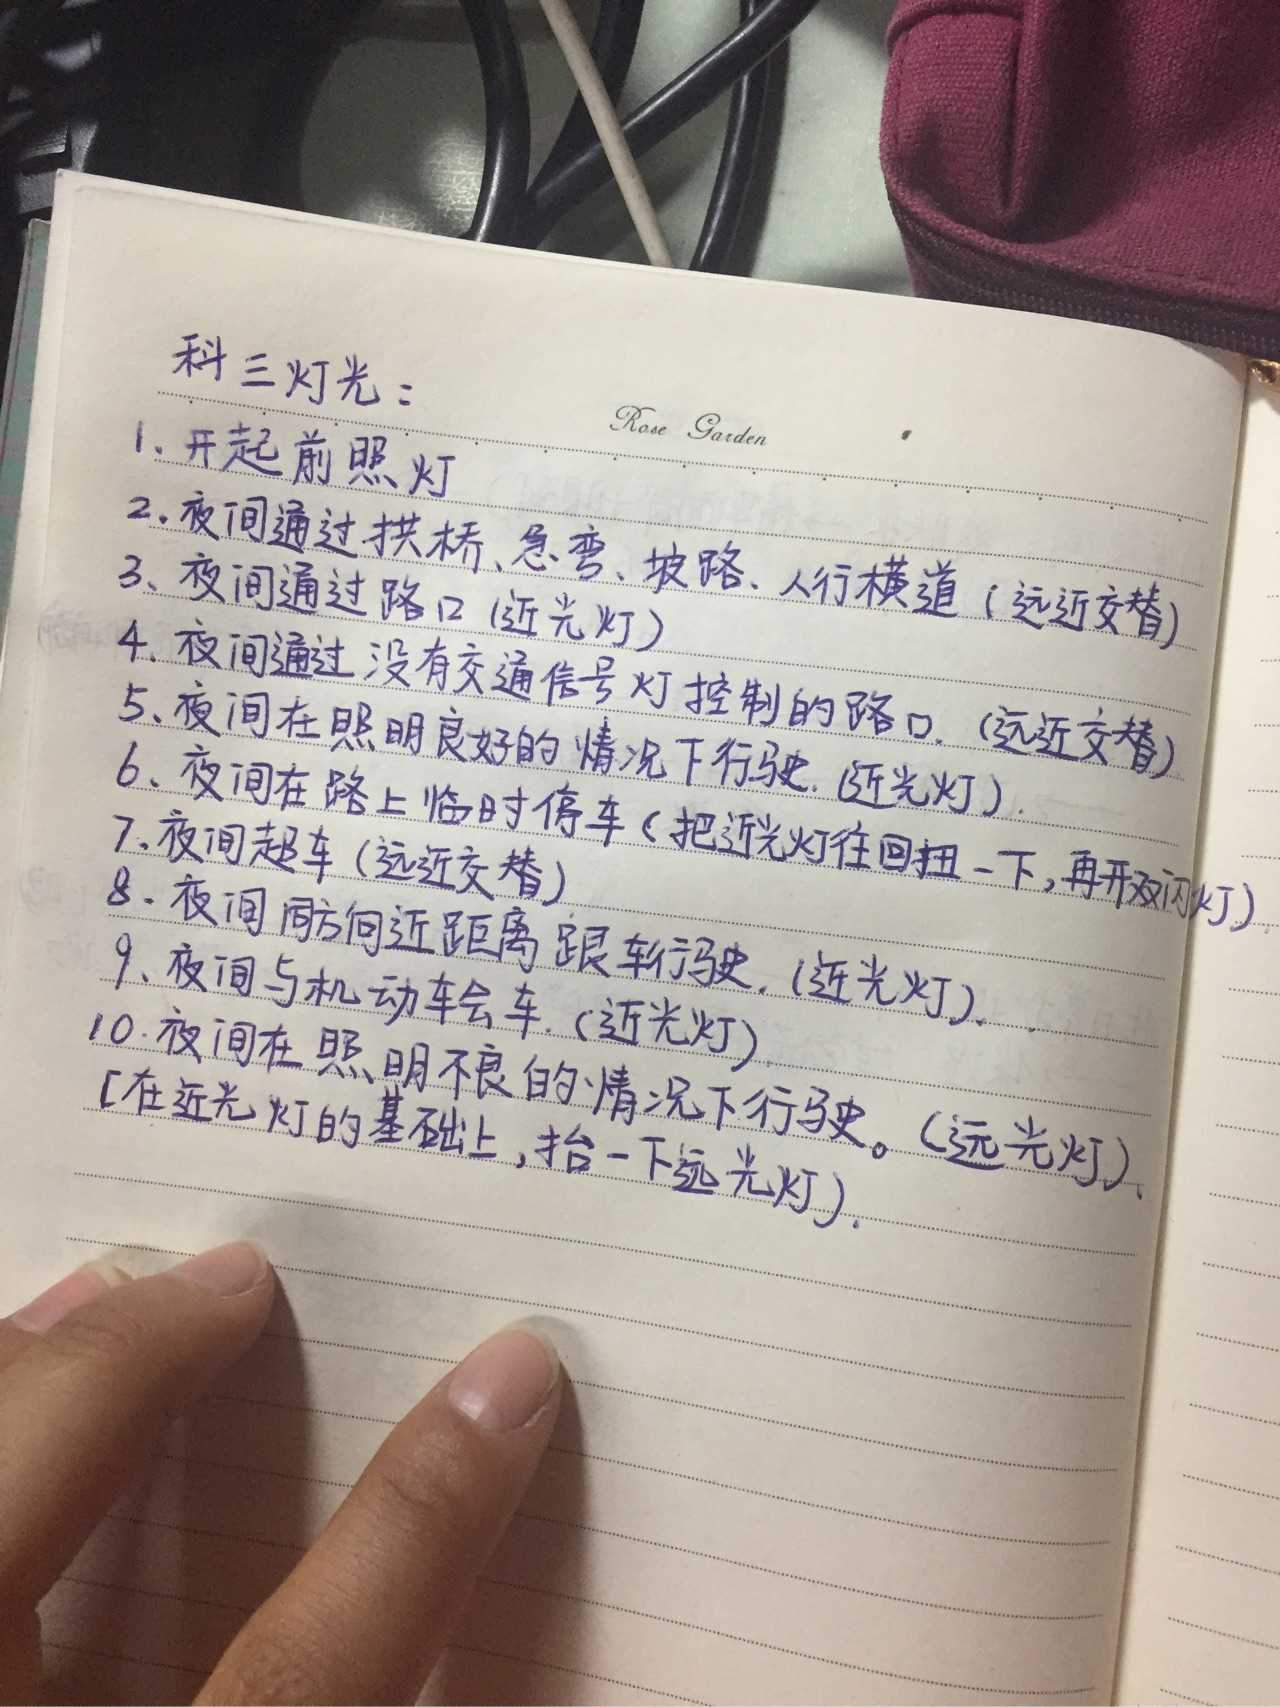 科三灯光：
Rose Garden
1、开起前照灯
2、夜间通过拱桥、急弯、坡路、人行横道(远近交替)
3、夜间通过路口(近光灯)
4、夜间通过没有交通信号灯控制的路口.(远近交替)
5、夜间在照明良好的情况下行驶.(近光灯).
6、夜间在路上临时停车(把近光灯往回扭一下,再开双闪灯)
7、夜间超车(远近交替)
8、夜间同方向近距离跟车行驶.(近光灯).
9、夜间与机动车会车.(近光灯)
10.夜间在照明不良的情况下行驶。(远光灯).
[在近光灯的基础上,抬一下远光灯).